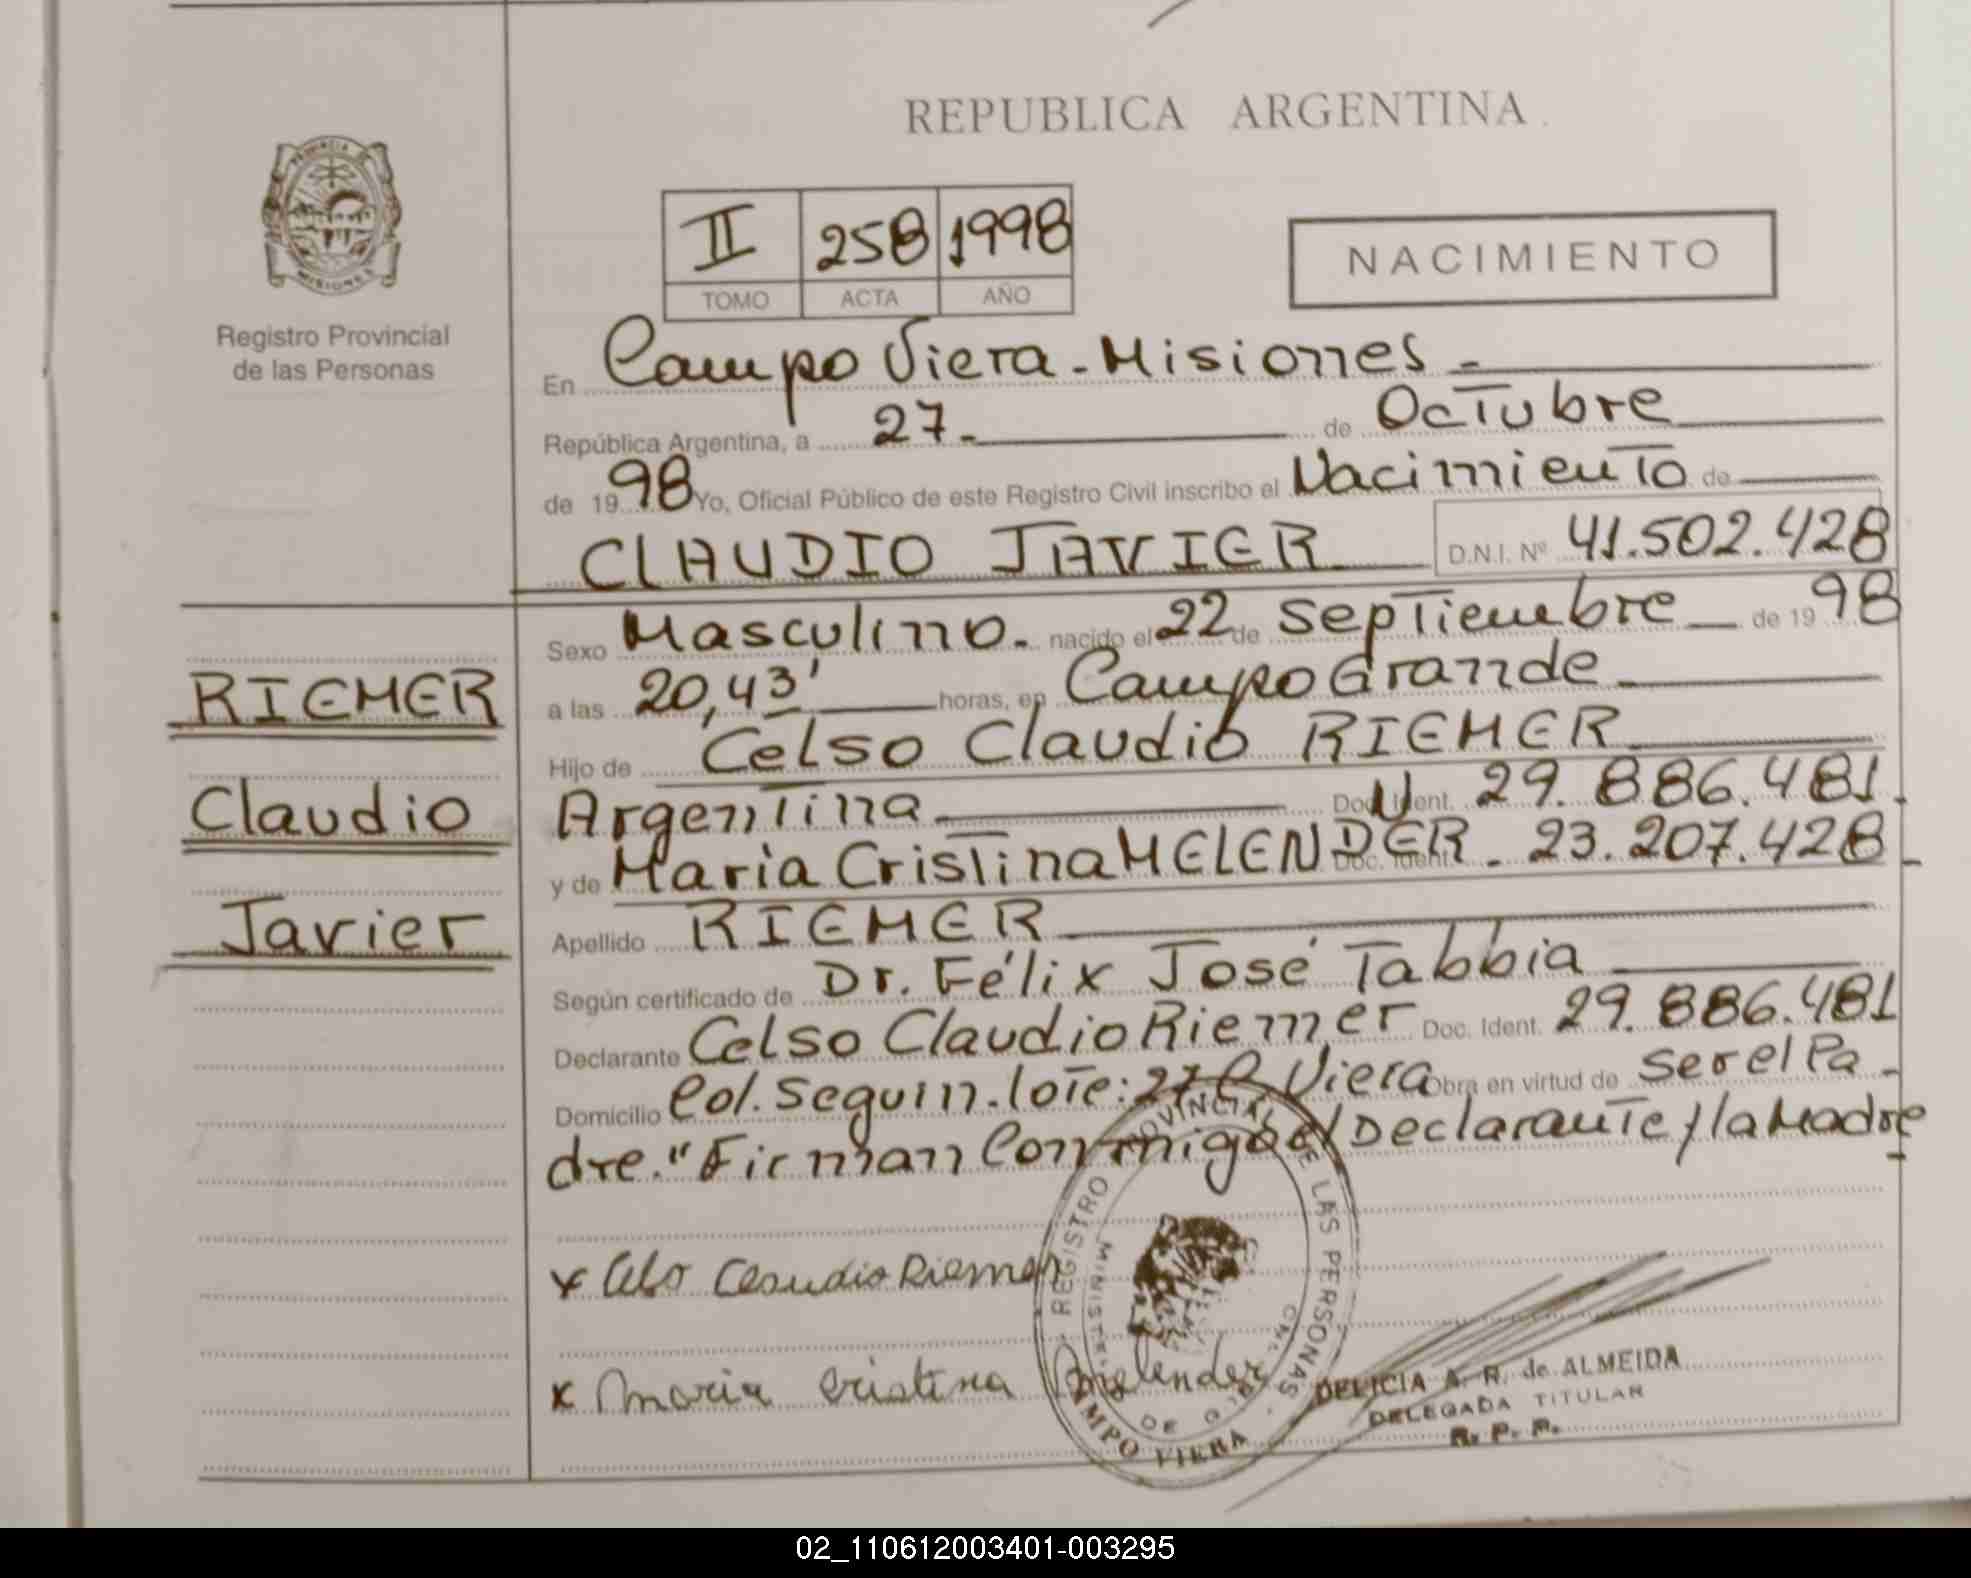 REPUBLICA ARGENTINA
PROVINCIA DE
MISIONES
Registro Provincial
de las Personas
II 258 1998
TOMO ACTA AÑO
NACIMIENTO
En Campo Viera - Misiones -
República Argentina, a 27 - de Octubre
de 1998 Yo, Oficial Público de este Registro Civil inscribo el Nacimiento de
CLAUDIO JAVIER D.N.I. Nº 41.502.428
Sexo Masculino. nacido el 22 de septiembre de 1998
RIEMER
a las 20,43' horas, en Campo Grande
Hijo de Celso Claudio RIEMER
Claudio
Argentina Doc. Ident. 29.886.481.
y de Maria Cristina MELENDER Doc. Ident. - 23.207.428 -
Javier
Apellido RIEMER
Según certificado de Dr. Félix José Tabbia
Declarante Celso Claudio Riemer Doc. Ident. 29.886.481
Domicilio Col. Seguin. lote: 27 C. Viera Obra en virtud de ser el Pa-
dre." Firman Conmigo el Declarante y la Madre
x Celso Claudio Riemer
x Maria Cristina Melender
REGISTRO PROVINCIAL DE LAS PERSONAS
CAMPO VIERA
DELICIA A. R. de ALMEIDA
DELEGADA TITULAR
R. P. P.
02_110612003401-003295